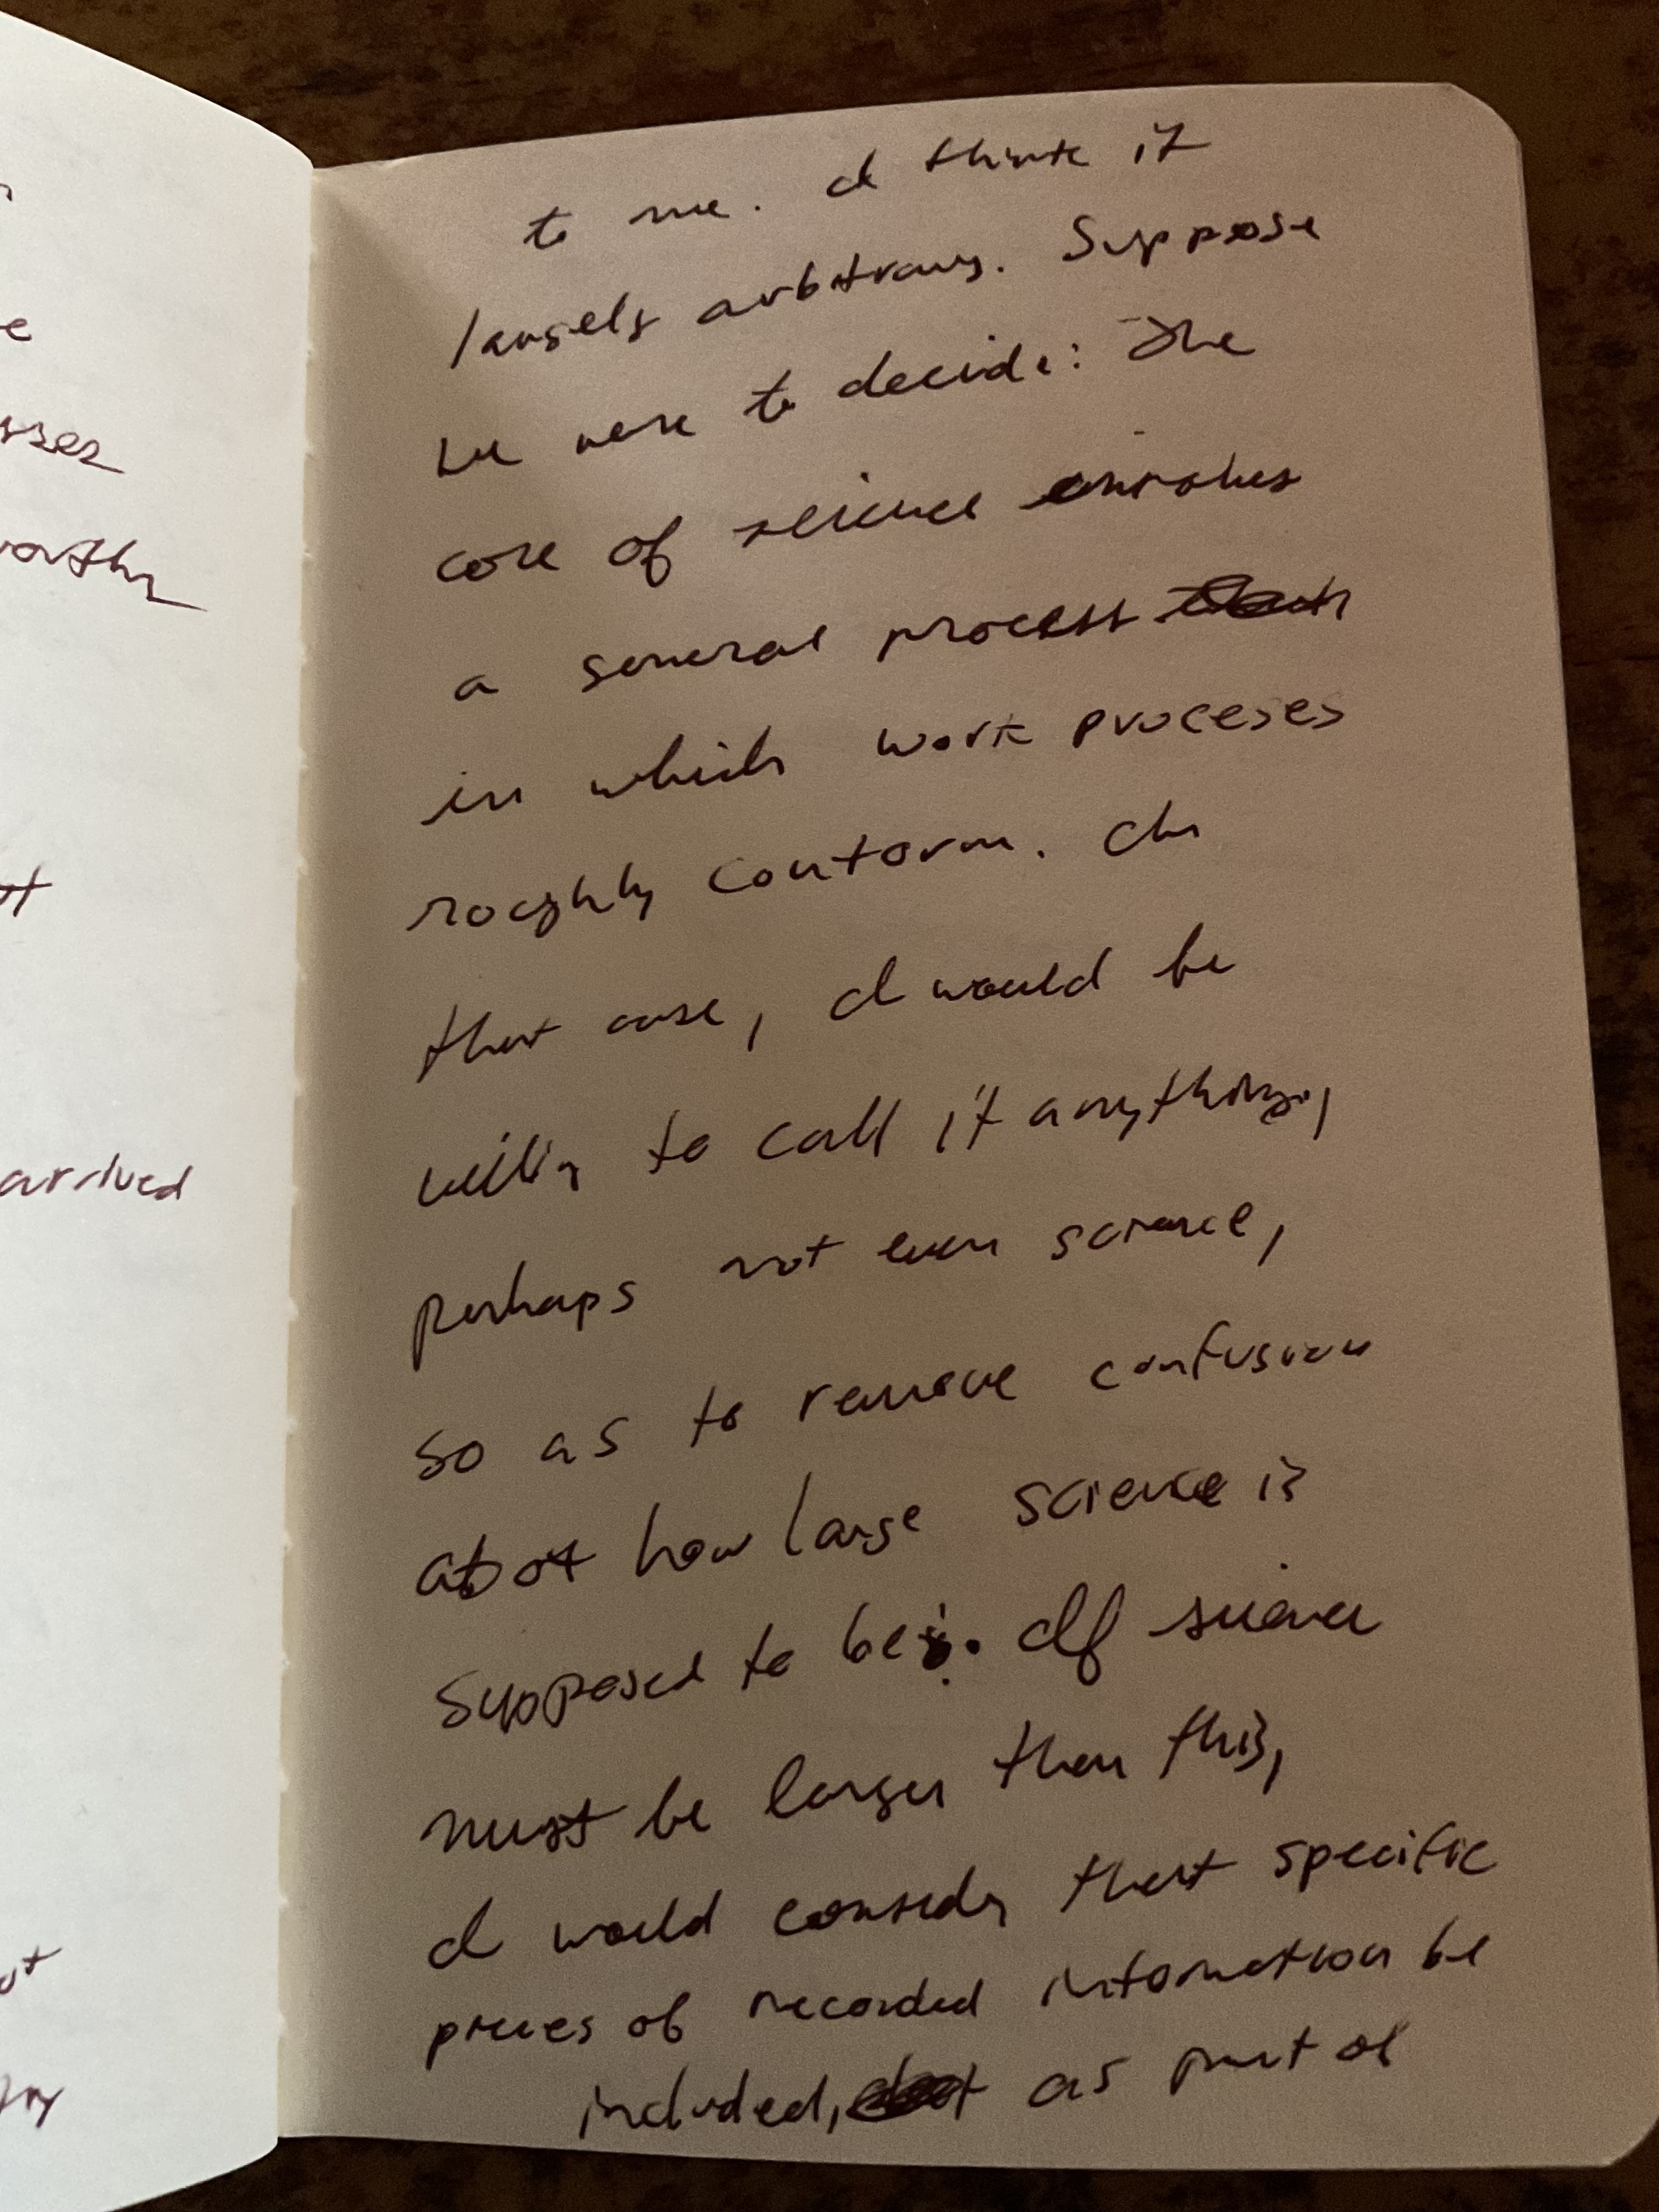 to me. I think it
largely arbitrary. Suppose
we were to decide: The
core of science
a general process
in which work proceses
roughly conform. In
that case, I would be
willing to call it anything,
perhaps not even science,
so as to remove confusion
about how large science is
supposed to be. If science
must be larger than this,
I would consider that specific
pieces of recorded information be
included, as part of
arrived